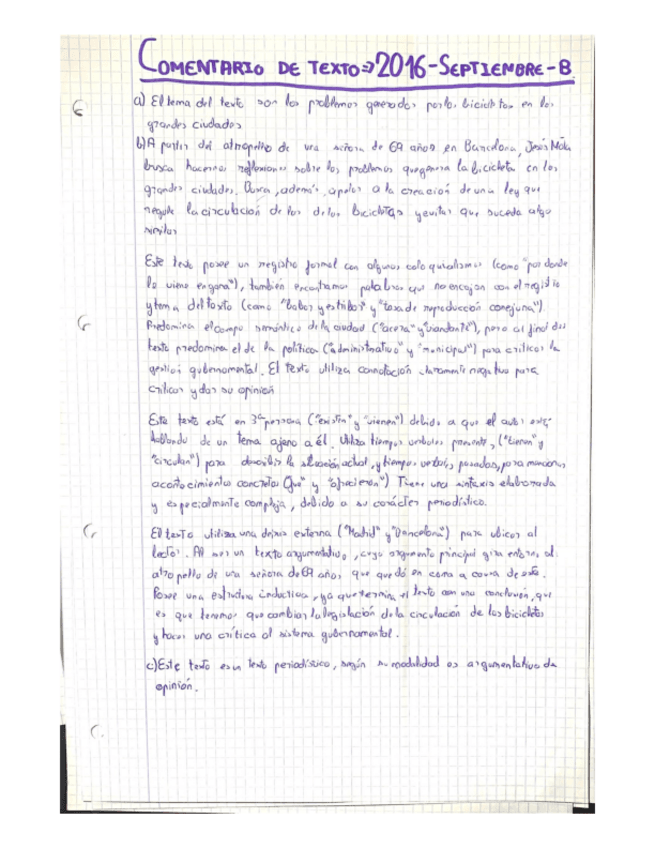 COMENTARIO DE TEXTO => 2016 - SEPTIEMBRE - B
a) El tema del texto son los problemas generados por las bicicletas en las
grandes ciudades
b) A partir del atropello de una señora de 69 años en Barcelona, Jesús Mota
busca hacernos reflexionar sobre los problemas que genera la bicicleta en las
grandes ciudades. Busca, además, apelar a la creación de una ley que
regule la circulación de los de las bicicletas y evitar que suceda algo
similar
Este texto posee un registro formal con algunos coloquialismos (como "por donde
le viene en gana"), también encontramos palabras que no encajan con el registro
y tema del texto (como "bobos y estribos" y "tasa de reproducción conejuna").
Predomina el campo semántico de la ciudad ("acera" y "viandante"), pero al final del
texto predomina el de la política ("administrativo" y "municipal") para criticar la
gestión gubernamental. El texto utiliza connotación claramente negativa para
criticar y dar su opinión
Este texto está en 3ª persona ("existen" y "vienen") debido a que el autor está
hablando de un tema ajeno a él. Utiliza tiempos verbales presente, ("tienen" y
"circulan") para describir la situación actual, y tiempos verbales pasados, para mencionar
acontecimientos concretos ("fue" y "aparecieron") Tiene una sintaxis elaborada
y especialmente compleja, debido a su carácter periodístico.
El texto utiliza una deixis externa ("Madrid" y "Barcelona") para ubicar al
lector. Al ser un texto argumentativo, cuyo argumento principal gira entorno al
atropello de una señora de 69 años, que quedó en coma a causa de este.
Posee una estructura inductiva, ya que termina el texto con una conclusión, que
es que tenemos que cambiar la legislación de la circulación de las bicicletas
y hacer una crítica al sistema gubernamental.
c) Este texto es un texto periodístico, según su modalidad es argumentativo de
opinión.